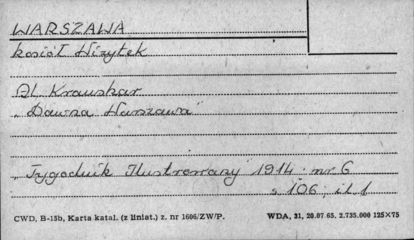 WARSZAWA
kosiół Wizytek
Al Kraushar
„Dawna Warszawa"
„Tygodnik Ilustrowany" 1914 nr 6
s. 106, il. 1
CWD, B-15b, Karta katal. (z liniat.) z. nr 1606/ZW/P. WDA, 31, 20.07.65, 2.735.000 125×75